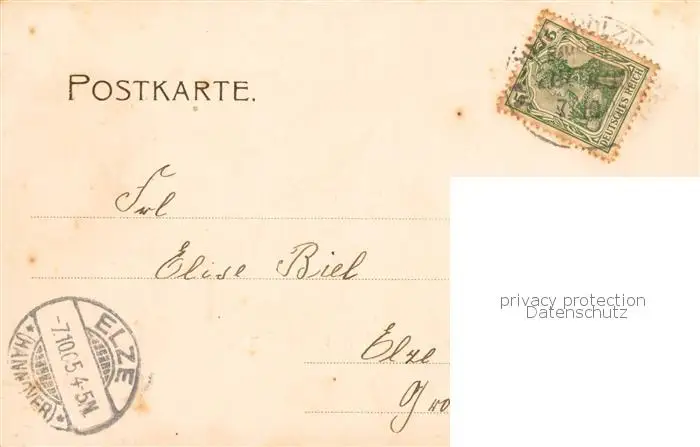 POSTKARTE.
5 5
DEUTSCHES REICH
Frl
Elise Biel
privacy protection
Datenschutz
Elze
ELZE
-7.10.05 4-5N.
*(HANNOVER)*